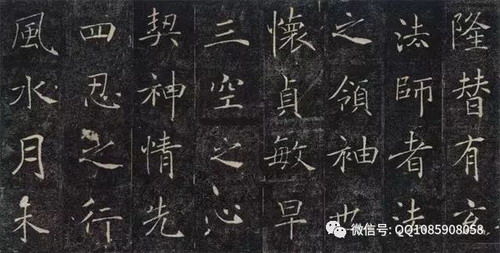 隆替有玄
法師者法
之領袖也
懷貞敏早
三空之心
契神情先
四忍之行
風水月未
微信号: QQ1085908058